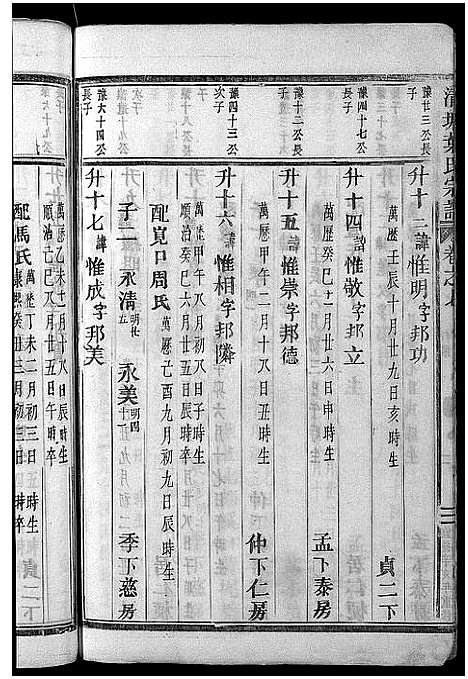 豫廿三公長子
升十二諱惟明字邦功
萬歷壬辰十月廿九日亥時生
貞二下
豫四十七公長子
升十四諱惟敬字邦立
萬歷癸巳十一月廿六日申時生
孟下泰房
豫十二公長子
升十五諱惟崇字邦德
萬歷甲午二月十八日丑時生
仲下仁房
豫四十三公次子
升十六諱惟相字邦隣
萬歷甲午八月初八日子時生
順治癸巳六月廿八日午時卒
配寬口周氏 萬歷己酉九月初九日辰時生
子二 永清 明廿五 永美 明四十一
季下慈房
豫六十四公長子
升十七諱惟成字邦美
萬歷乙未十二月十八日辰時生
順治己巳八月廿五日午時卒
配馮氏 萬歷丁未二月初三日